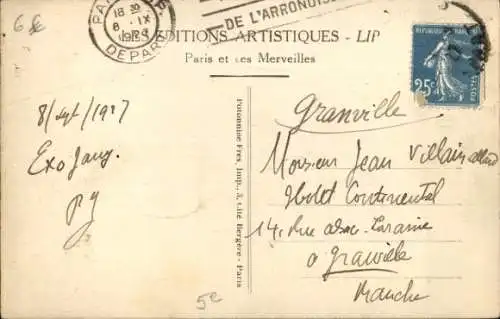 6 €
PARIS
18 30
8 · IX
DEPART
DE L'ARRONDIS
LES EDITIONS ARTISTIQUES - LIP
Paris et ses Merveilles
REPUBLIQUE FRANÇAISE
25c
POSTES
8/Sept/1927
Potonniée Fres, Imp., 3, Cité Bergère - Paris
Granville
Monsieur Jean Villain
Hotel Continental
14, Rue
à Granville
Manche
5€